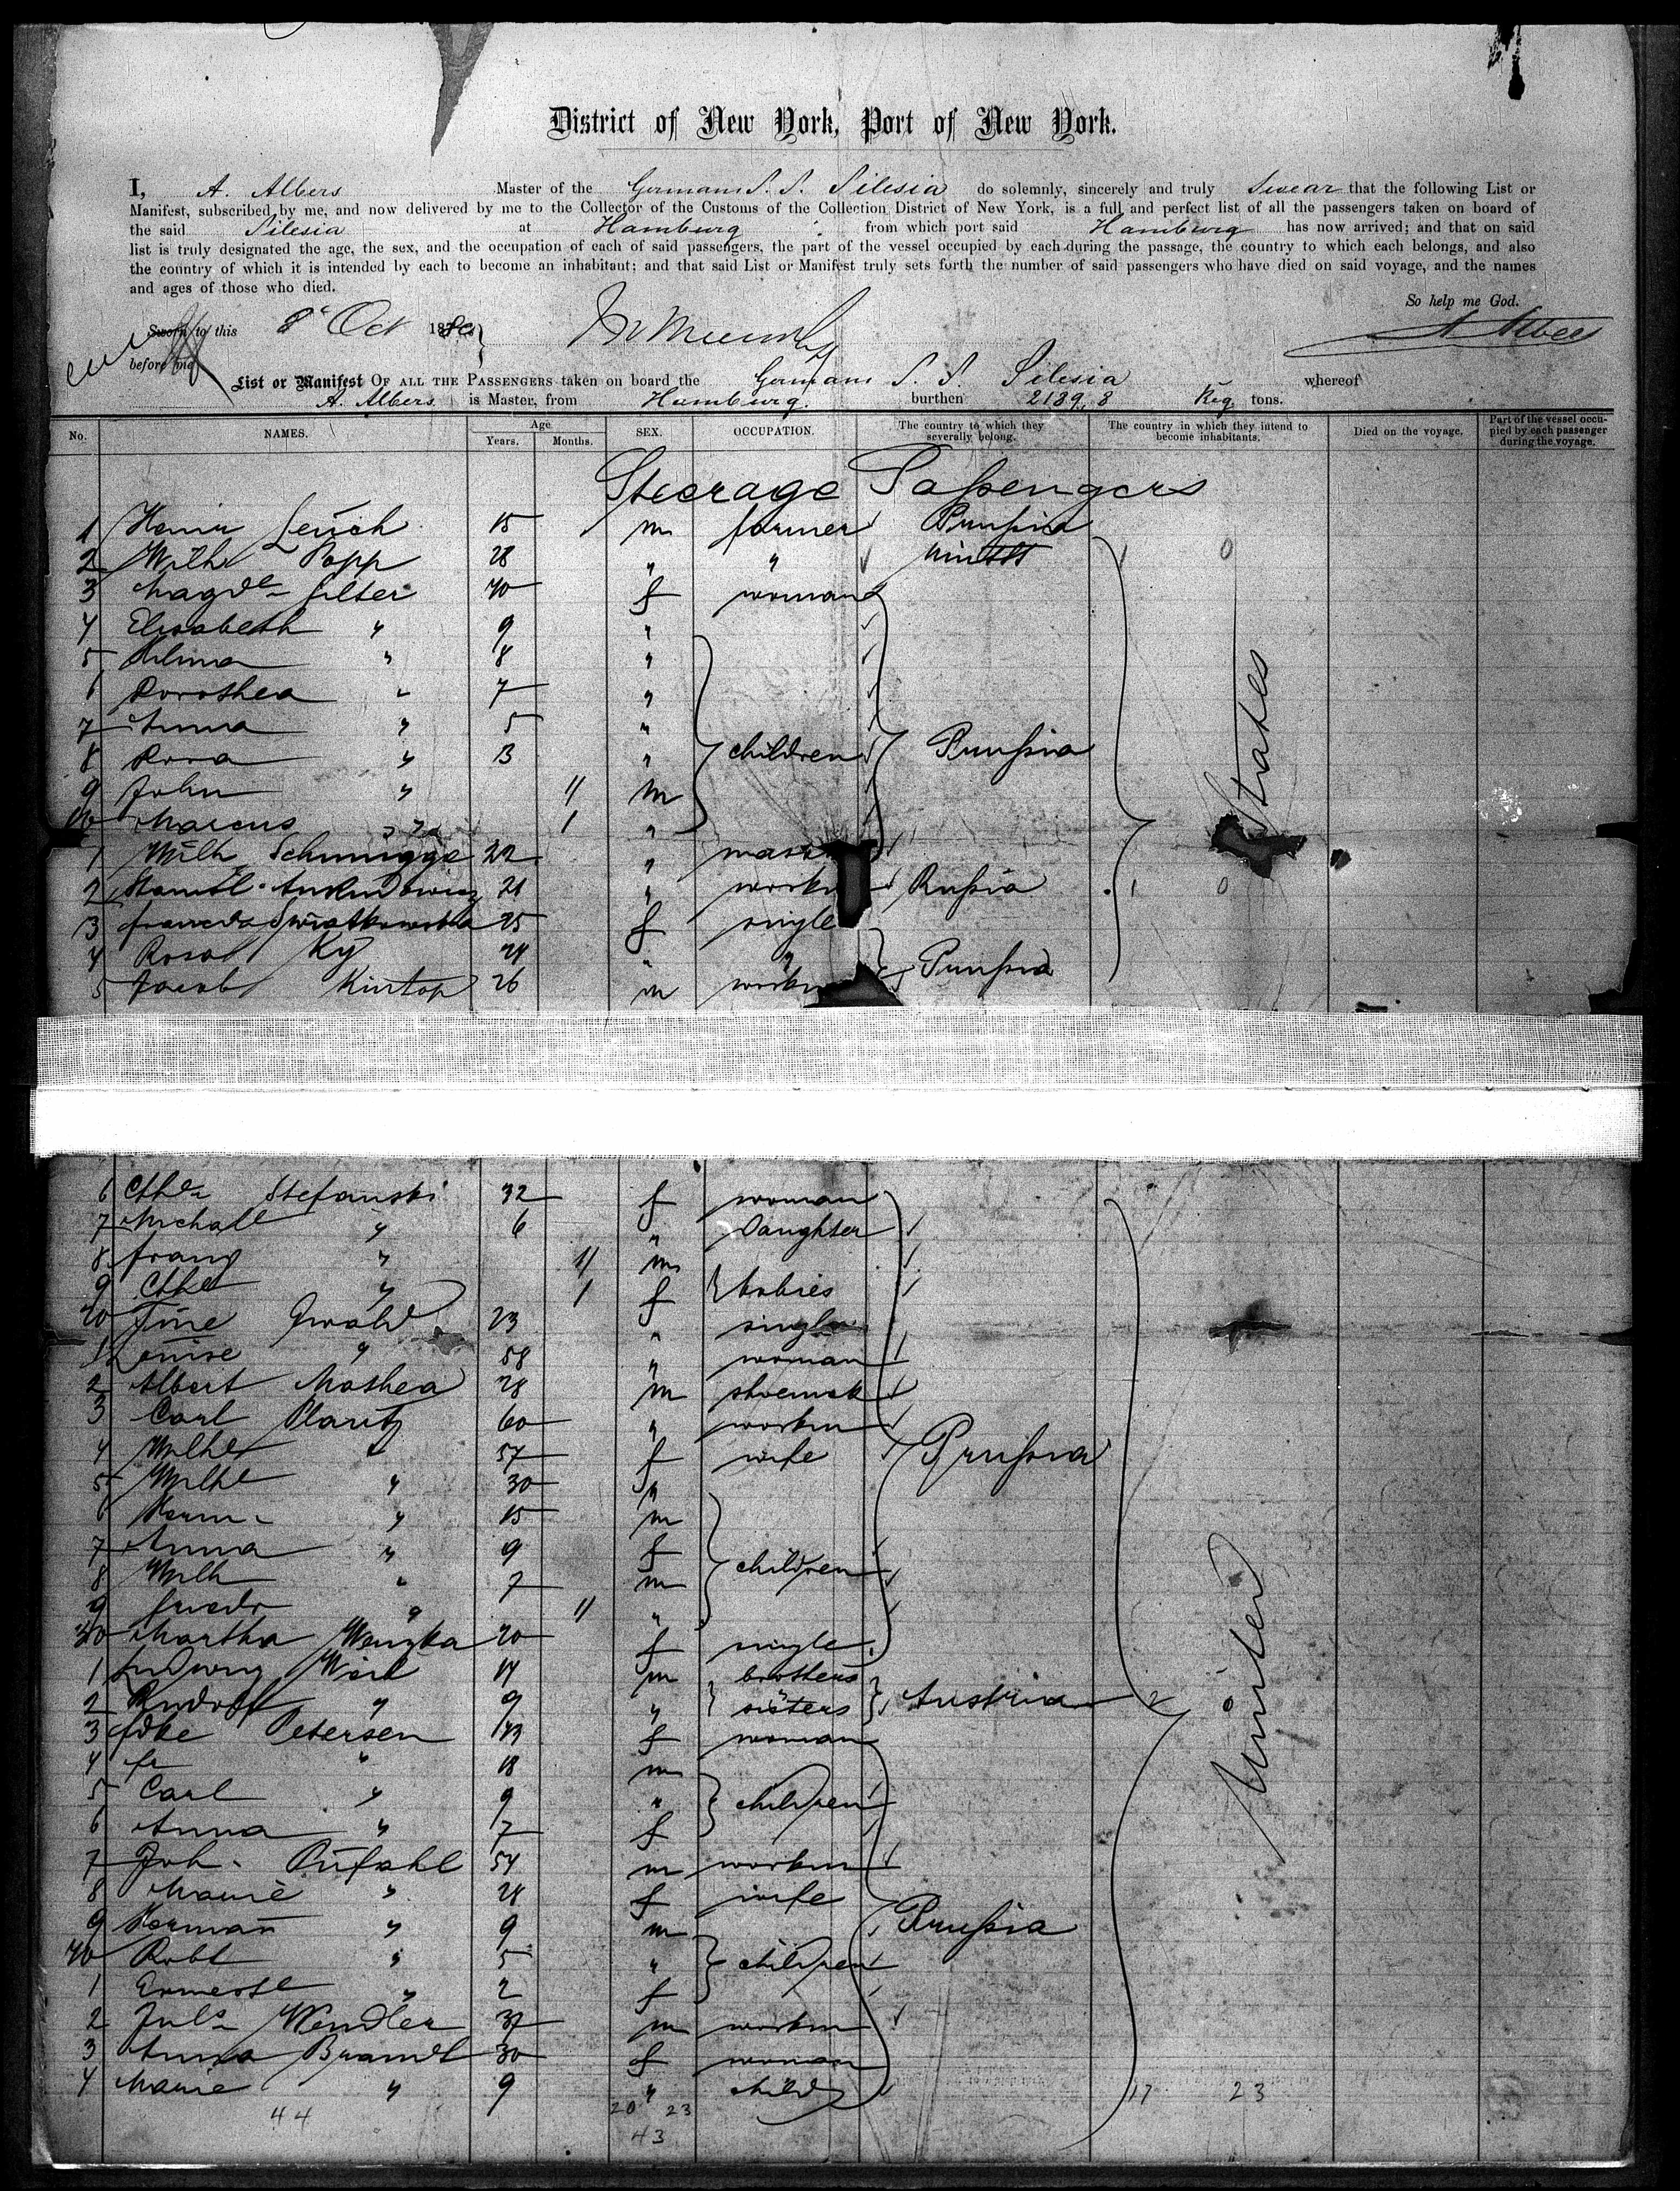 District of New York, Port of New York.
I, A. Albers Master of the German S. S. Silesia do solemnly, sincerely and truly swear that the following List or
Manifest, subscribed by me, and now delivered by me to the Collector of the Customs of the Collection District of New York, is a full and perfect list of all the passengers taken on board of
the said Silesia at Hamburg from which port said Hamburg has now arrived; and that on said
list is truly designated the age, the sex, and the occupation of each of said passengers, the part of the vessel occupied by each during the passage, the country to which each belongs, and also
the country of which it is intended by each to become an inhabitant; and that said List or Manifest truly sets forth the number of said passengers who have died on said voyage, and the names
and ages of those who died.
So help me God.
Sworn to this 8 Oct 1880 A Albers
before me
List or Manifest OF ALL THE PASSENGERS taken on board the German S. S. Silesia whereof
A. Albers is Master, from Hamburg. burthen 2189,8 Reg tons.
No. NAMES. Age Years. Months. SEX. OCCUPATION. The country to which they severally belong. The country in which they intend to become inhabitants. Died on the voyage. Part of the vessel occupied by each passenger during the voyage.
Steerage Passengers
1 Lenich 15 m farmer Prussia
2 Wilh Popp 28 " "
3 Magde filter 40 f woman
4 Elisabeth " 9 "
5 Helma " 8 "
6 Dorothea " 7 "
7 Anna " 5 "
8 Rosa " 3 " children Prussia
9 John " 11 m
10 Marcus " 1 "
1 Wilh Schmigge 22 "
2 21 " workm Russia
3 25 f single
4 Rosa Ky 24 " "
Prussia
5 Jacob Kintop 26 m workm
6 Stefanski 32 f woman
7 Michall " 6 " Daughter
8 franz " 11 m
9 " 1 f babies
20 Tine Gwald 23 " single
1 Louise " 58 " woman
2 Albert Mathea 28 m shoemak
3 Carl Plantz 60 " workm
4 Wilhe " 57 f wife Prussia
5 Wilhe " 30 "
6 Herm. " 15 m
7 Anna " 9 f
8 Wilh " 7 m children
9 friedr " 11 "
30 Martha Wenzka 20 f single
1 Ludwig 14 m brothers
2 Rudolf " 9 " sisters Austria
3 Petersen 43 f woman
4 fr " 18 m
5 Carl " 9 " children
6 Anna " 7 f
7 Joh. Püfahl 54 m workm
8 Marie " 28 f wife
9 Herman " 9 m Prussia
40 Robt " 5 " children
1 Ernestl " 2 f
2 Juls Wendler 32 m workm
3 Anna Brandt 30 f woman
4 Marie " 9 " child 17 23
44 20 23
43
United States